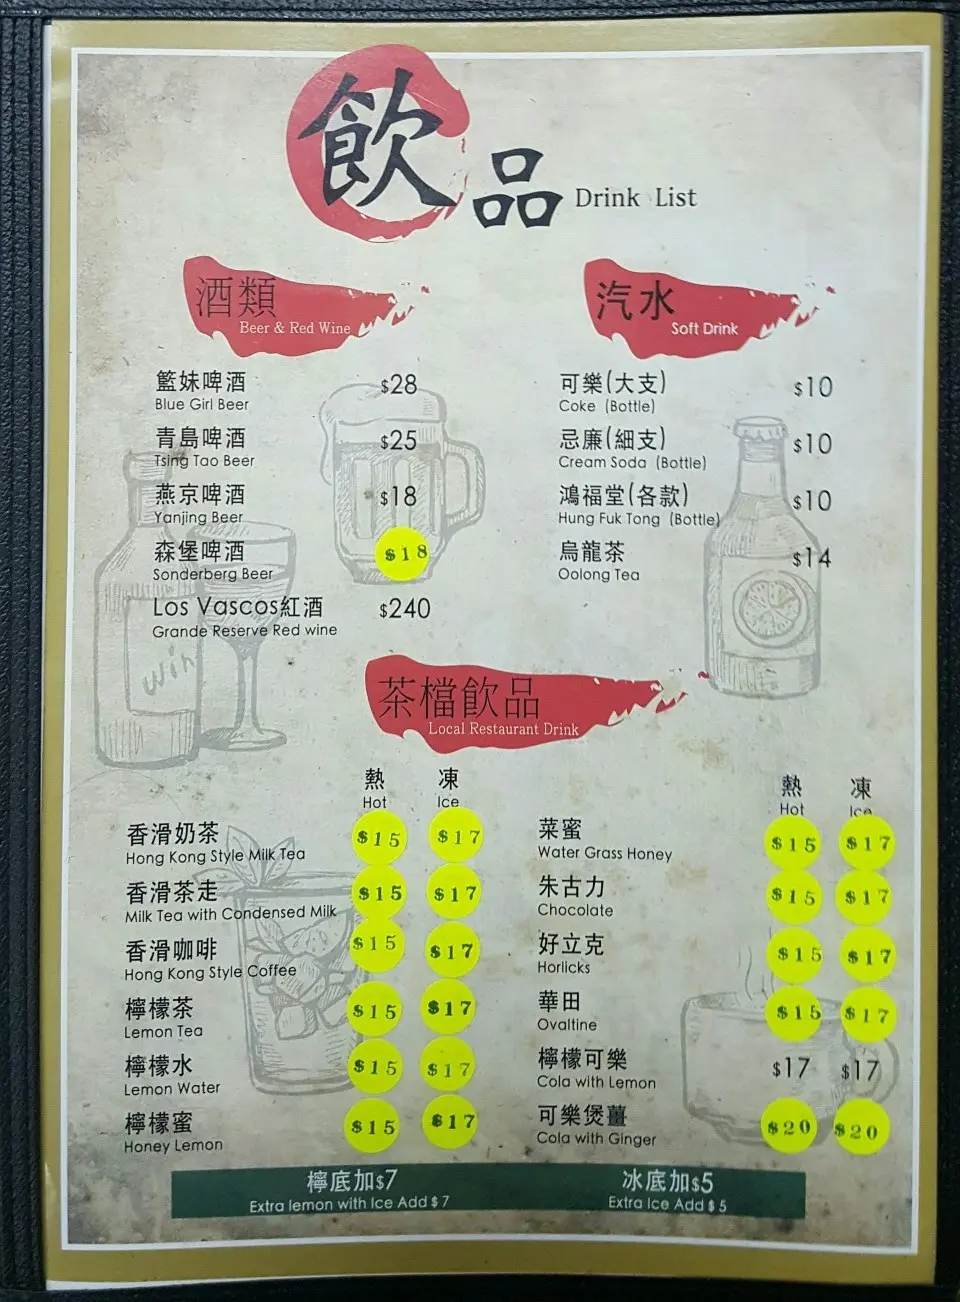 飲品 Drink List
酒類
Beer & Red Wine
籃妹啤酒 $28
Blue Girl Beer
青島啤酒 $25
Tsing Tao Beer
燕京啤酒 $18
Yanjing Beer
森堡啤酒 $18
Sonderberg Beer
Los Vascos紅酒 $240
Grande Reserve Red wine
Win
汽水
Soft Drink
可樂(大支) $10
Coke (Bottle)
忌廉(細支) $10
Cream Soda (Bottle)
鴻福堂(各款) $10
Hung Fuk Tong (Bottle)
烏龍茶 $14
Oolong Tea
茶檔飲品
Local Restaurant Drink
熱 凍
Hot Ice
香滑奶茶 $15 $17
Hong Kong Style Milk Tea
香滑茶走 $15 $17
Milk Tea with Condensed Milk
香滑咖啡 $15 $17
Hong Kong Style Coffee
檸檬茶 $15 $17
Lemon Tea
檸檬水 $15 $17
Lemon Water
檸檬蜜 $15 $17
Honey Lemon
熱 凍
Hot Ice
菜蜜 $15 $17
Water Grass Honey
朱古力 $15 $17
Chocolate
好立克 $15 $17
Horlicks
華田 $15 $17
Ovaltine
檸檬可樂 $17 $17
Cola with Lemon
可樂煲薑 $20 $20
Cola with Ginger
檸底加$7
Extra lemon with Ice Add $7
冰底加$5
Extra Ice Add $5